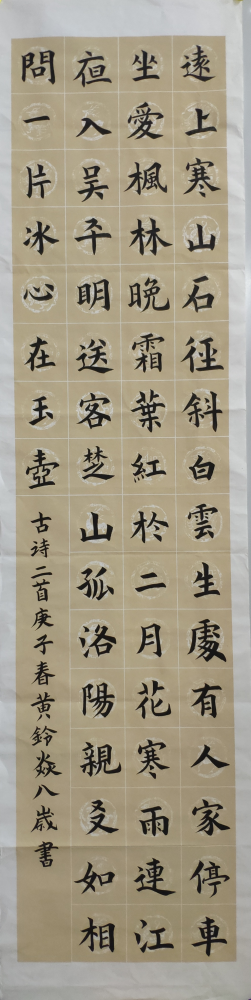 遠上寒山石徑斜白雲生處有人家停車
坐愛楓林晚霜葉紅於二月花寒雨連江
夜入吳平明送客楚山孤洛陽親友如相
問一片冰心在玉壺
古詩二首庚子春黃鈴焱八歲書